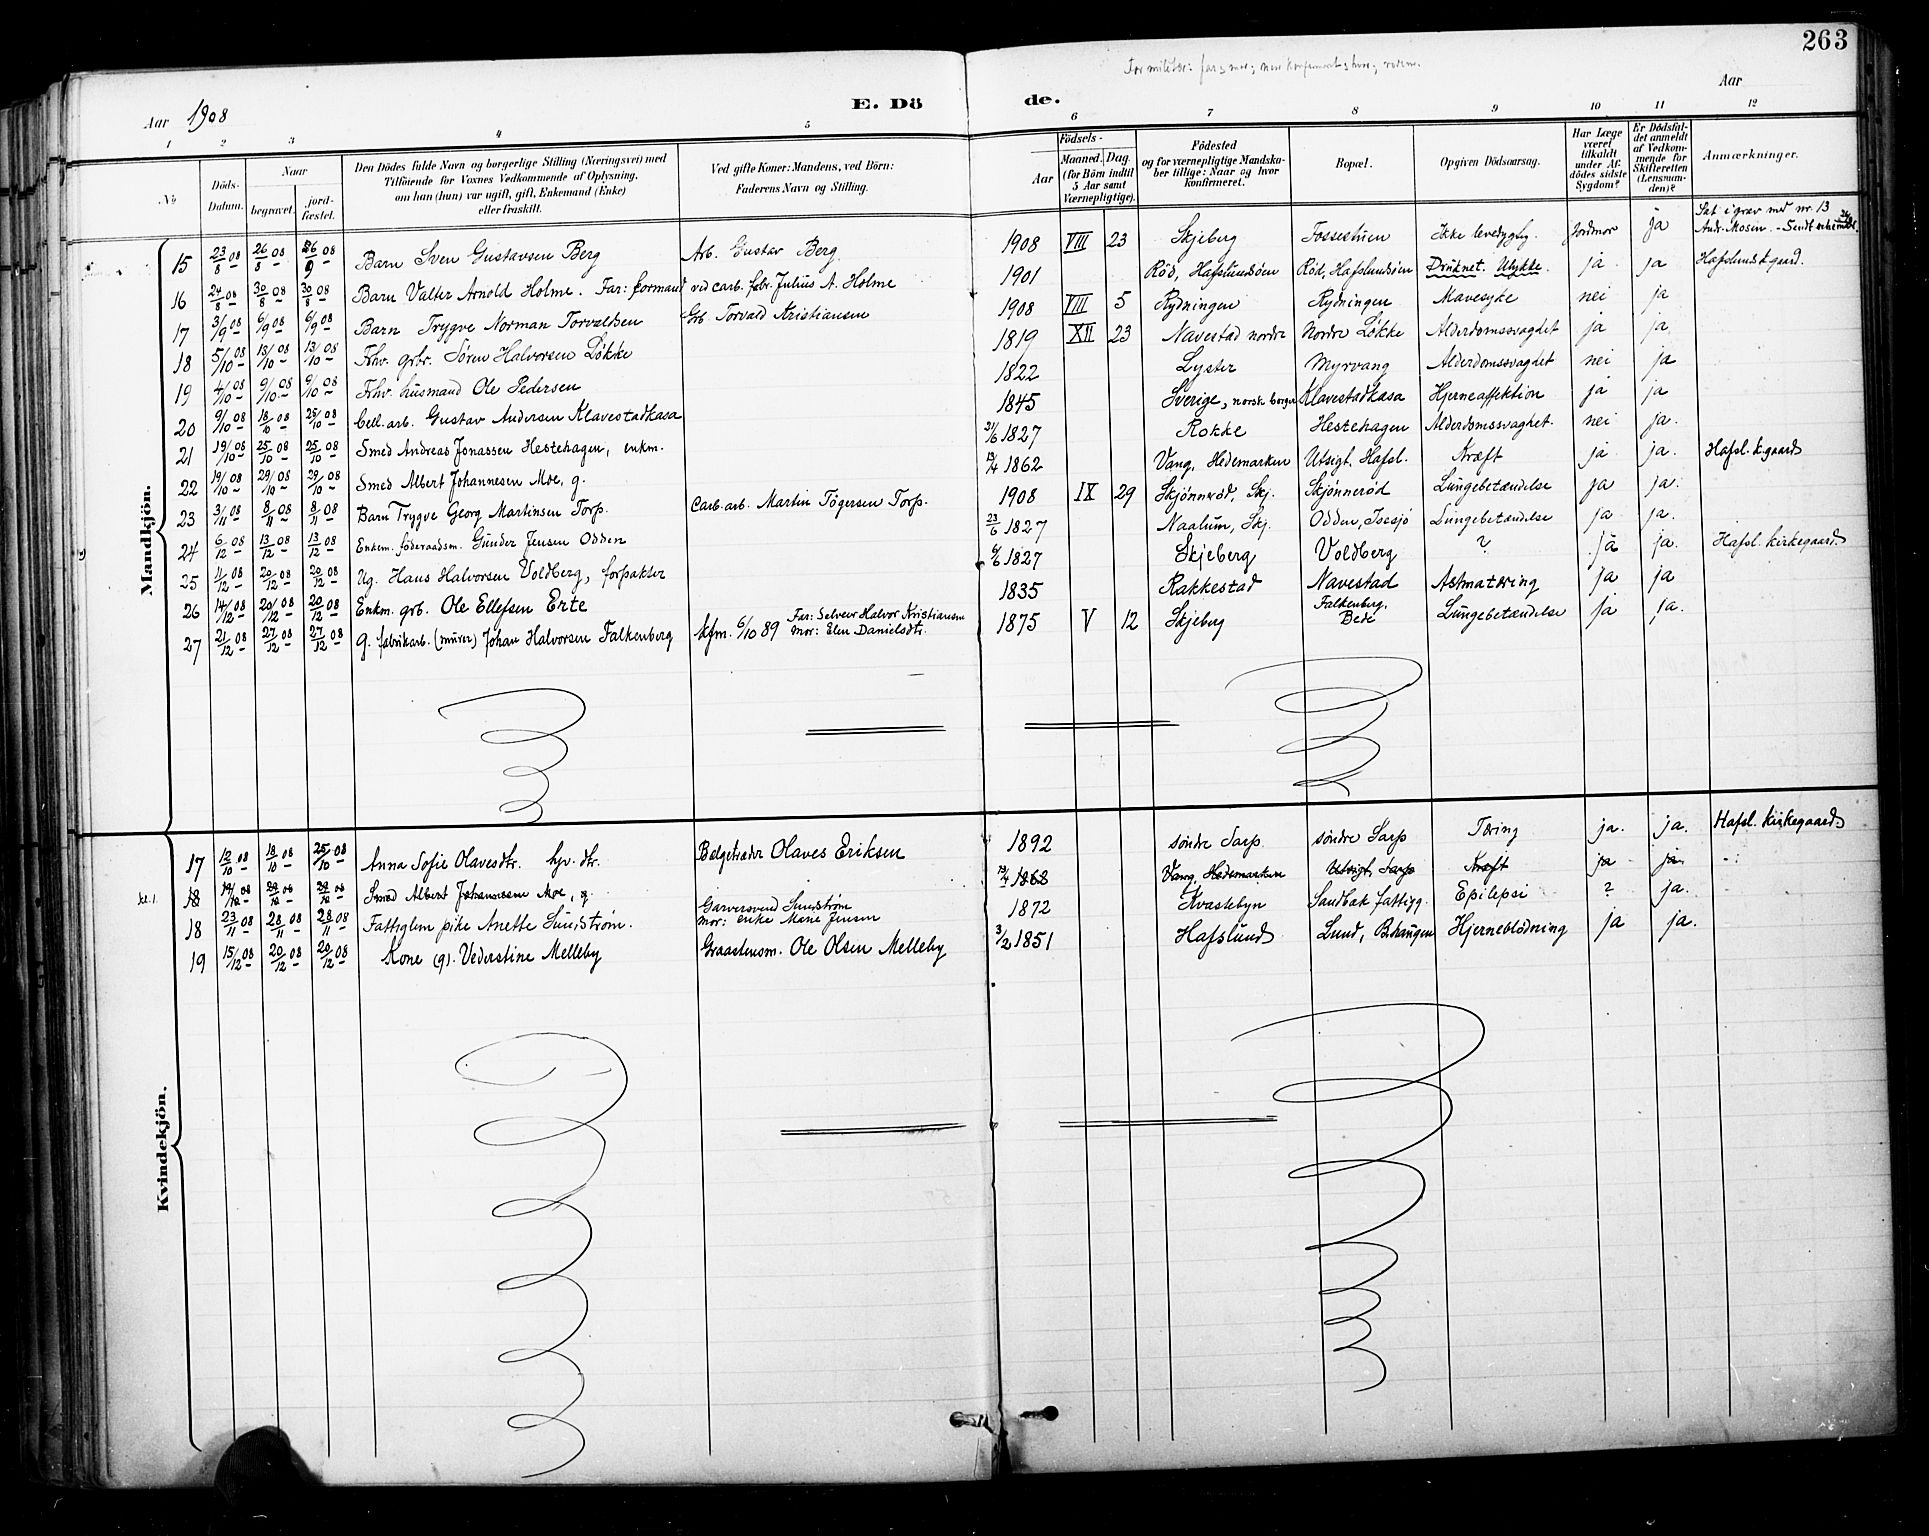 263
For militær: far, mor; naar konfirmert, hvor;
Aar 1908
E. Döde.
Aar
1 2 3 4 5 6 7 8 9 10 11 12
№
Döds-Datum.
Naar
begravet.
jord-fæstet.
Den Dödes fulde Navn og borgerlige Stilling (Næringsvei) med
Tilföiende for Voxnes Vedkommende af Oplysning,
om han (hun) var ugift, gift, Enkemand (Enke)
eller fraskilt.
Ved gifte Koner: Mandens, ved Börn:
Faderens Navn og Stilling.
Födsels-
Aar
Maaned. Dag.
(for Börn indtil
5 Aar samt
Værnepligtige).
Födested
og for værnepligtige Mandska-
ber tillige: Naar og hvor
konfirmeret.
Bopæl.
Opgiven Dödsaarsag.
Har Læge
været
tilkaldt
under Af-
dödes sidste
Sygdom?
Er Dödsfal-
det anmeldt
af Vedkom-
mende for
Skifteretten
(Lensman-
den)?
Anmærkninger.
Mandkjön.
15 23/8 08 26/8 08 Barn Sven Gustavsen Berg Arb. Gustav Berg 1908 VIII 23 Skjeberg Fossestuen Ikke levedygtig Jordmor ja Sat i grav med nr. 13 Andr. Mosen.
16 24/8 08 30/8 08 30/8 08 Barn Valter Arnold Holme. Far: formand ved carb. fabr. Julius A. Holme 1901 Röd, Hafslundsöen Röd, Hafslundsöen Druknet. Ulykke. ja ja Hafslund k.gaard.
17 3/9 08 6/9 08 6/9 08 Barn Trygve Norman Torvaldsen Grb. Torvald Kristiansen 1908 VIII 5 Rydningen Rydningen Mavesyke nei ja
18 5/10 08 13/10 08 13/10 08 Fhv. grbr. Sören Halvorsen Løkke 1819 XII 23 Navestad nordre Nordre Løkke Alderdomssvaghet ja ja
19 4/10 08 9/10 08 9/10 08 Fhv. husmand Ole Pedersen 1822 Lyster Myrvang Alderdomssvaghet nei ja
20 9/10 08 18/10 08 25/10 08 Cell. arb. Gustav Andersen Klavestadkasa 1845 Sverige, norsk borger Klavestadkasa Hjerneaffektion ja ja
21 19/10 08 25/10 08 25/10 08 Smed Andreas Jonassen Hestehagen, enkm. 21/6 1827 Rokke Hestehagen Alderdomssvaghet. nei ja.
22 19/10 08 29/10 08 29/10 08 Smed Albert Johannesen Moe, g. 13/4 1862 Vang, Hedemarken Utsigt, Hafsl. Kræft ja ja. Hafsl. k.gaard
23 3/11 08 8/11 08 8/11 08 Barn Trygve Georg Martinsen Torp. Carb. arb. Martin Tögersen Torp. 1908 IX 29 Skjönnerød, Skj. Skjönnerød Lungebetændelse ja ja.
24 6/12 08 13/12 08 13/12 08 Enkem. föderaadsm. Gunder Jensen Odden 23/6 1827 Naalum, Skj. Odden, Isesjø Lungebetændelse ja ja.
25 11/12 08 20/12 08 20/12 08 Ug. Hans Halvorsen Voldberg, forpakter 6/6 1827 Skjeberg Voldberg ? ja ja. Hafsl. kirkegaard.
26 14/12 08 20/12 08 20/12 08 Enkm. grb. Ole Ellefsen Erte 1835 Rakkestad Navestad Astmatæring ja ja
27 21/12 08 27/12 08 27/12 08 g. fabrikarb. (murer) Johan Halvorsen Falkenberg kfm. 6/10 89 Far: Selveier Halvor Kristiansen mor: Elen Danielsdtr. 1875 V 12 Skjeberg Falkenberg, Bede Lungebetændelse ja ja.
Kvindekjön.
17 12/10 08 18/10 08 25/10 08 Anna Sofie Olavesdtr. hjv. dtr. Bælgetræder Olaves Eriksen 1892 søndre Sarp søndre Sarp Tæring ja. ja. Hafsl. kirkegaard
18 19/10 08 29/10 08 29/10 08 Smed Albert Johannesen Moe, g. 13/4 1862 Vang, Hedemarken Utsigt, Sarp Kræft ja ja.
18 23/11 08 28/11 08 28/11 08 Fattiglem pike Anette Sundström. Garversvend Sundström mor: enke Marie Jensen 1872 Kvastebyn Sandbak fattigg. Epilepsi ? ja.
19 15/12 08 20/12 08 20/12 08 Kone (g). Vederstine Melleby Graastensm. Ole Olsen Melleby 3/2 1851 Hafslund Lund, B.haugen Hjerneblödning ja ja.